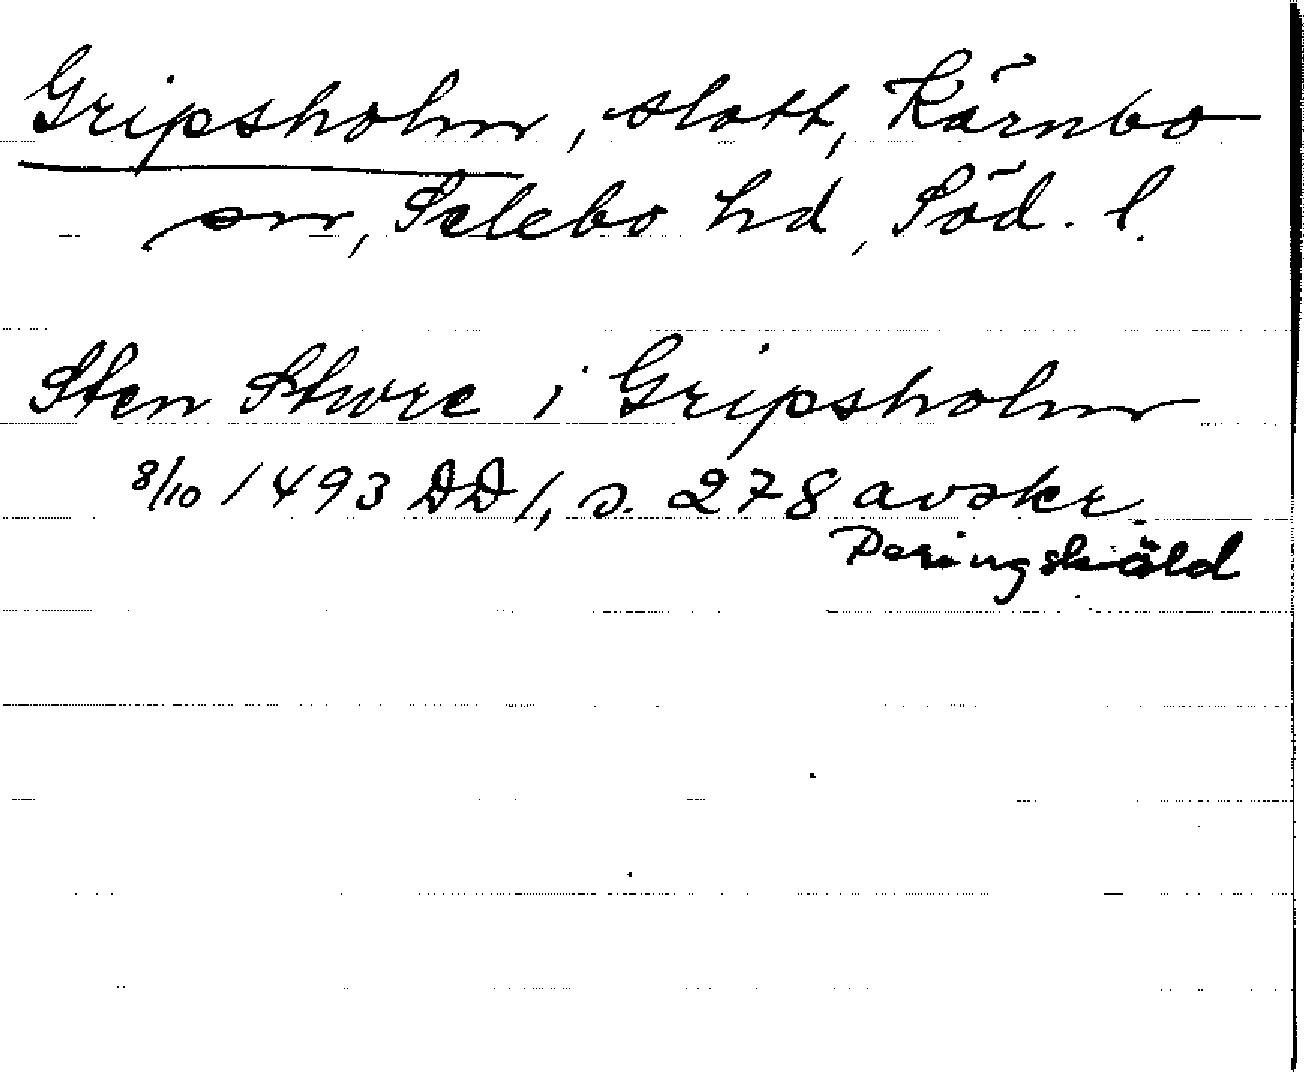 Gripsholm, slott, Kärnbo
sn, Selebo hd, Söd. l.
Sten Stwre i Gripsholm
8/10 1493 DD 1, s. 278 avskr.
Peringskiöld